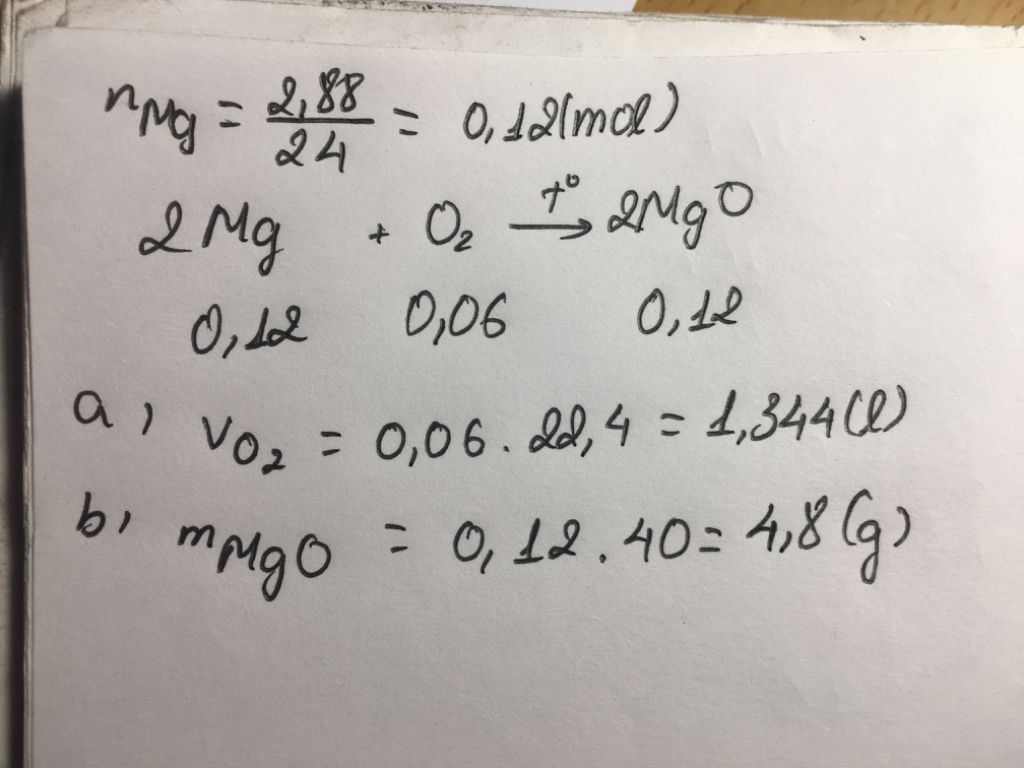 nMg = 2,88/24 = 0,12(mol)
2Mg + O₂ →(t°) 2MgO
0,12 0,06 0,12
a, VO₂ = 0,06 . 22,4 = 1,344(l)
b, mMgO = 0,12 . 40 = 4,8(g)